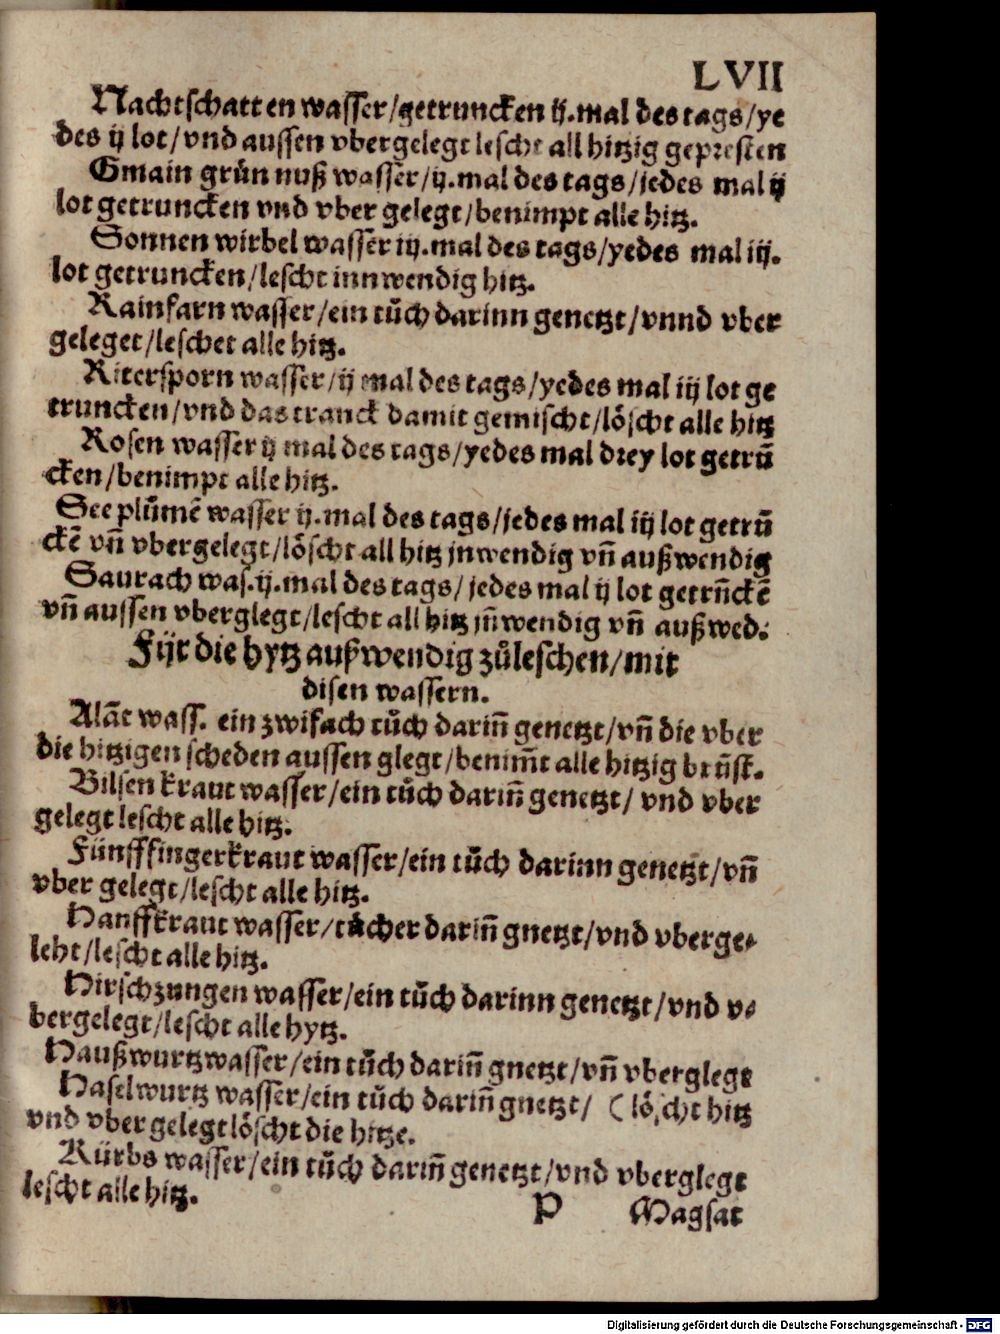 LVII
Nachtschatten wasser/getruncken ij.mal des tags/ye
des ij lot/vnd aussen vbergelegt lescht all hitzig gepresten
Gmain grün nuß wasser/ij.mal des tags/jedes mal ij
lot getruncken vnd vber gelegt/benimpt alle hitz.
Sonnen wirbel wasser iij.mal des tags/yedes mal iij.
lot getruncken/lescht innwendig hitz.
Rainfarn wasser/ein tůch darinn genetzt/vnnd vber
geleget/leschet alle hitz.
Ritersporn wasser/ij mal des tags/yedes mal iij lot ge
truncken/vnd das tranck damit gemischt/löscht alle hitz
Rosen wasser ij mal des tags/yedes mal drey lot getrū
cken/benimpt alle hitz.
See plůmē wasser ij.mal des tags/jedes mal iij lot getrū
ckē vñ vbergelegt/löscht all hitz jnwendig vñ außwendig
Saurach was.ij.mal des tags/jedes mal ij lot getrūckē
vñ aussen vberglegt/lescht all hitz jn̄wendig vñ außwed.
Fijr die hytz außwendig zůleschen/mit
disen wassern.
Alāt wass. ein zwifach tůch darin̄ genetzt/vñ die vber
die hitzigen scheden aussen glegt/benim̄t alle hitzig brūst.
Bilsen kraut wasser/ein tůch darin̄ genetzt/ vnd vber
gelegt lescht alle hitz.
Fünfffingerkraut wasser/ein tůch darinn genetzt/vñ
vber gelegt/lescht alle hitz.
Hanffkraut wasser/tücher darin̄ gnetzt/vnd vberge-
leht/lescht alle hitz.
Hirschzungen wasser/ein tůch darinn genetzt/vnd v-
bergelegt/lescht alle hytz.
Haußwurtzwasser/ein tůch darin̄ gnetzt/vñ vberglegt
Haselwurtz wasser/ein tůch darin̄ gnetzt/ (löscht hitz
vnd vber gelegt löscht die hitze.
Kürbs wasser/ein tůch darin̄ genetzt/vnd vberglegt
lescht alle hitz.
P Magsat
Digitalisierung gefördert durch die Deutsche Forschungsgemeinschaft - DFG